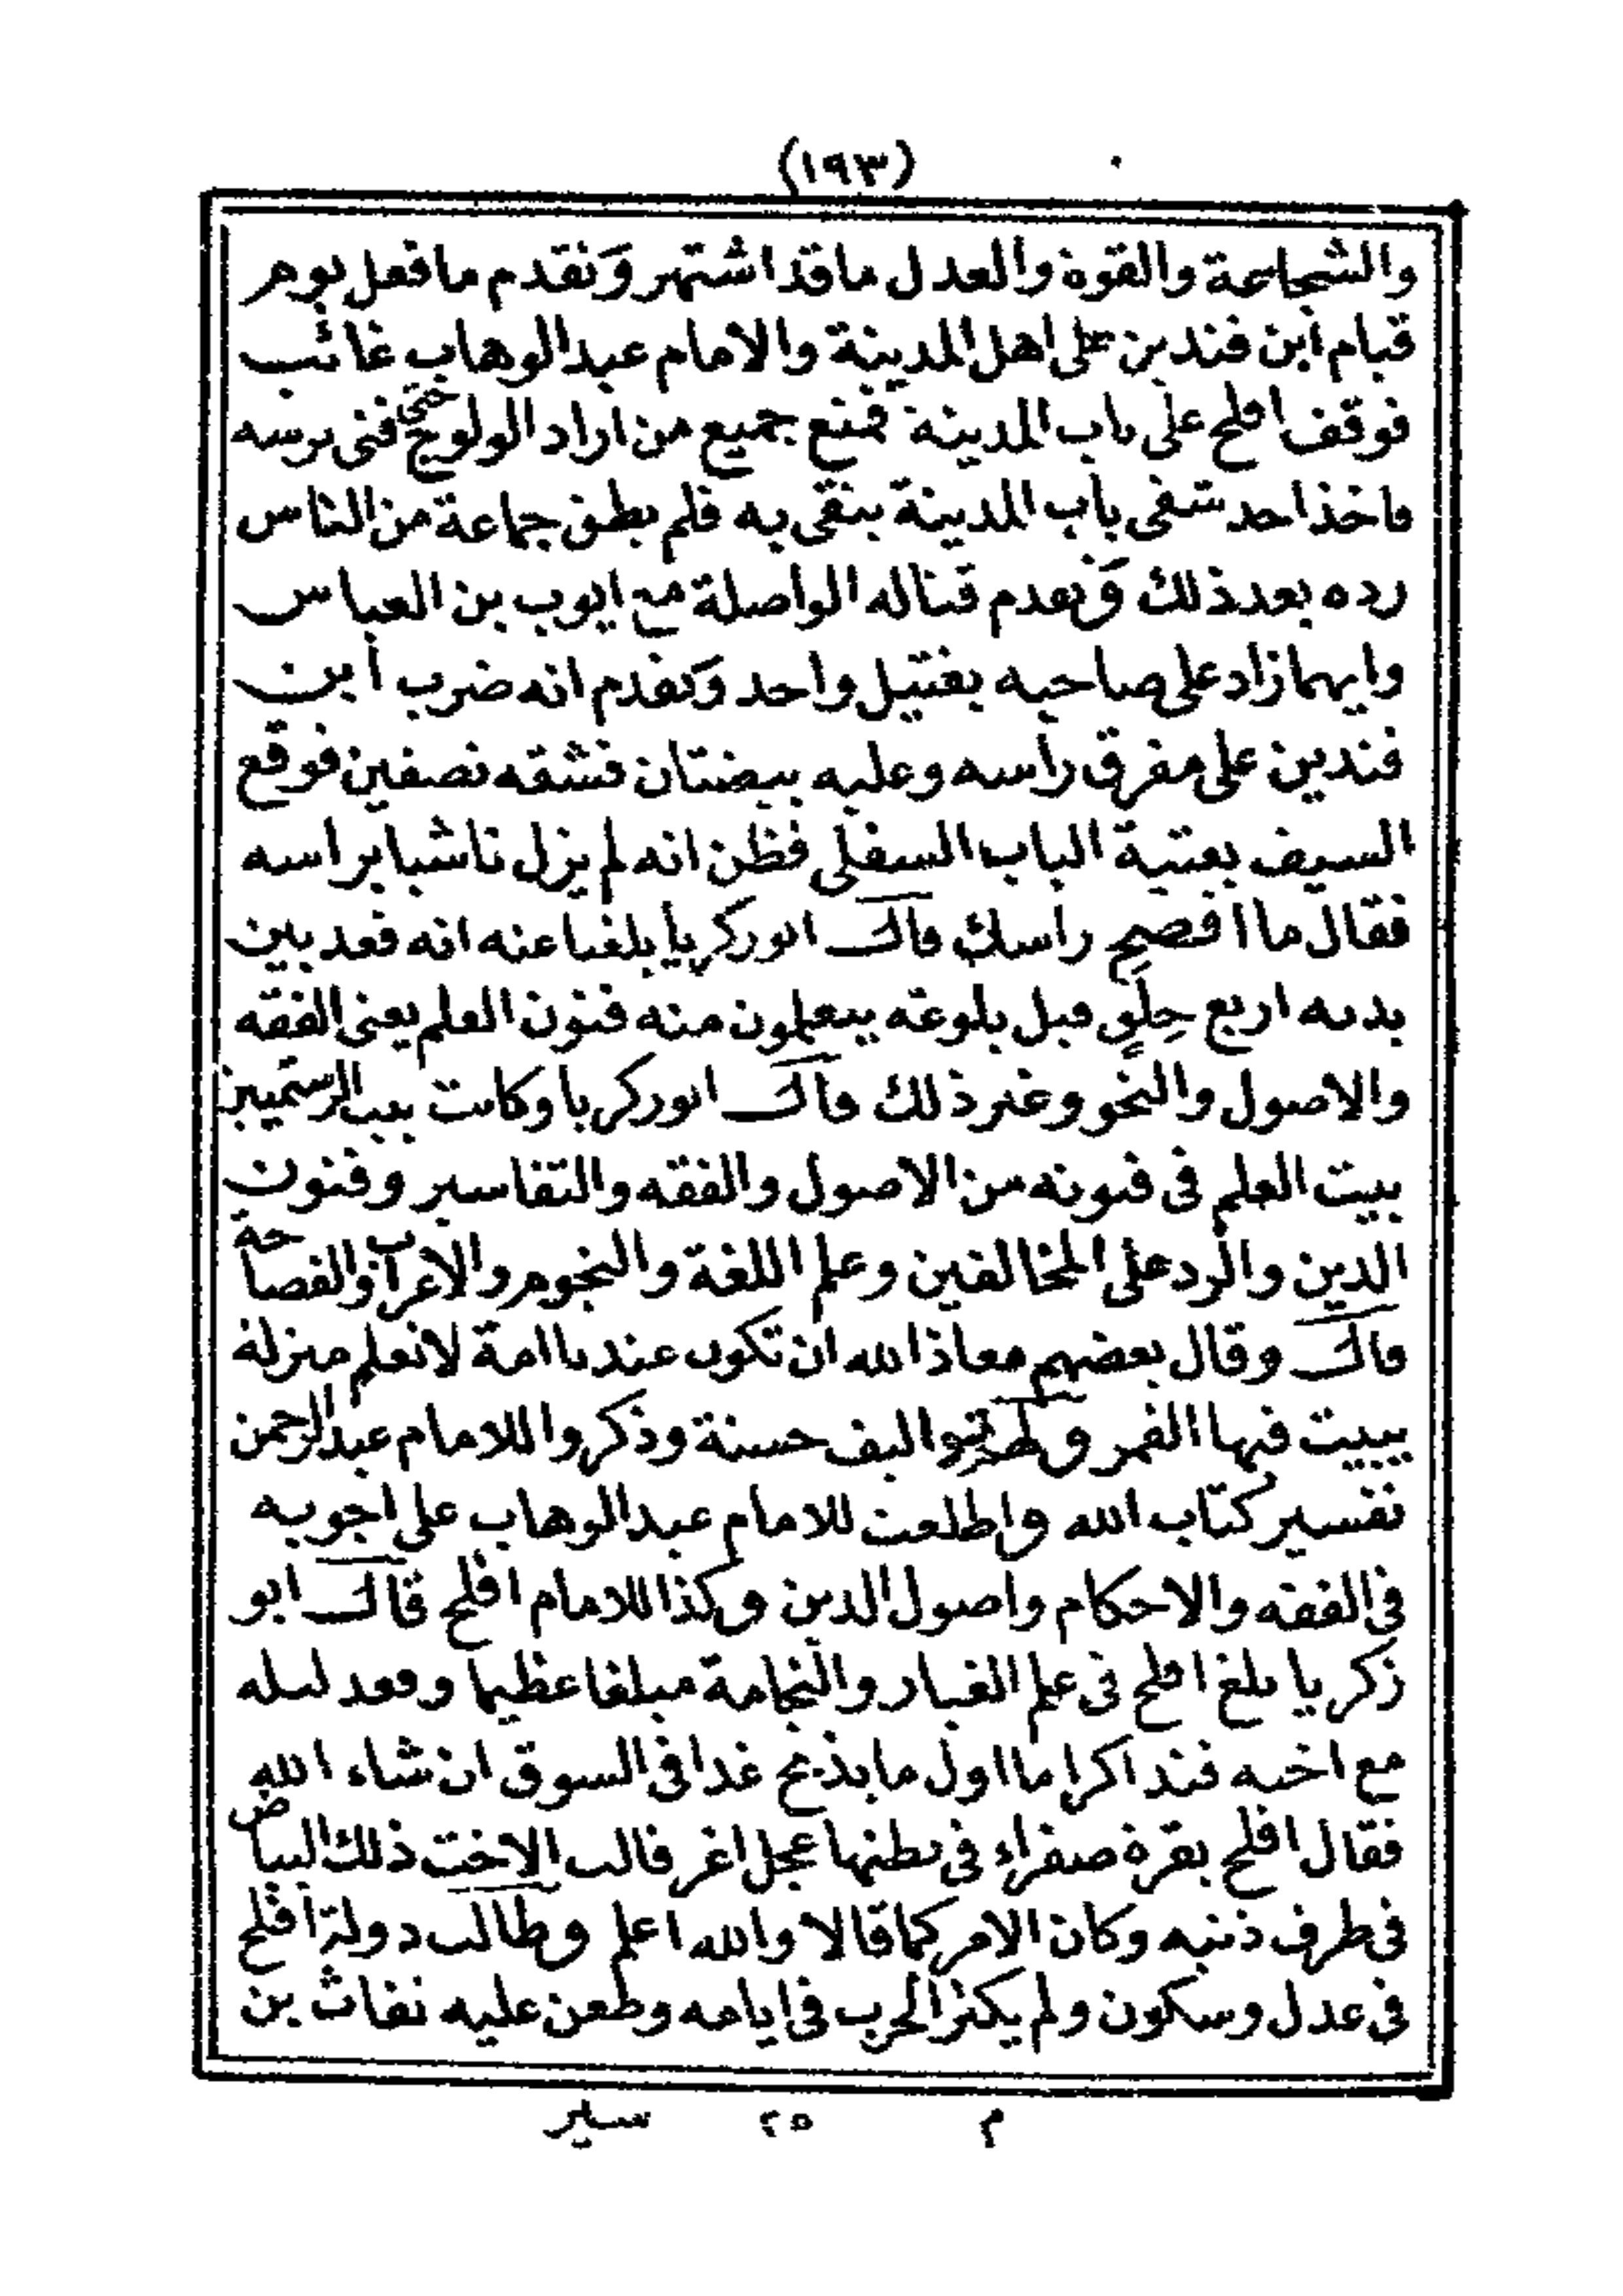 (١٩٣)
والشجاعة والقوة والعدل ماقد اشتهر وتقدم مافعل يوم
قيام ابن فندين على اهل المدينة والامام عبد الوهاب غائب
فوقف افلح على باب المدينة فمنع جميع من اراد الولوج حتى فنى ترسه
فاخذ احد شقى باب المدينة يتقى به فلم يطق جماعة من الناس
رده بعد ذلك وتقدم قتاله الواصلة مع ايوب بن العباس
وايهما زاد على صاحبه بقتيل واحد وتقدم انه ضرب ابن
فندين على مفرق راسه وعليه بيضتان فشقه نصفين فوقع
السيف بعتبة الباب السفلى فظن انه لم يزل ناشبا براسه
فقال ما اقصح راسك قال ابو زكريا بلغنا عنه انه قعد بين
يديه اربع حِلَقٍ قبل بلوغه يتعلمون منه فنون العلم يعنى الفقه
والاصول والنحو وغير ذلك قال ابو زكريا وكانت بيت الرستميين
بيت العلم فى فنونه من الاصول والفقه والتفاسير وفنون
الدين والرد على المخالفين وعلم اللغة والنجوم والاعراب والفصاحة
قال وقال بعضهم معاذ الله ان تكون عندنا امة لا تعلم منزلة
يبيت فيها القمر ولهم تواليف حسنة وذكروا للامام عبد الرحمن
تفسير كتاب الله واطلعت للامام عبد الوهاب على اجوبه
فى الفقه والاحكام واصول الدين وكذا للامام افلح قال ابو
زكريا بلغ افلح فى علم الغبار والنجامة مبلغا عظيما وقعد ليله
مع اخيه فتذاكرا ما اول ما يذبح غدا فى السوق ان شاء الله
فقال افلح بقرة صفراء فى بطنها عجل اغر قالت الاخت ذلك البياض
فى طرف ذنبه وكان الامر كما قالا والله اعلم وطالت دولة افلح
فى عدل وسكون ولم يكثر الحرب فى ايامه وطعن عليه نفاث بن
م ٢٥ سير